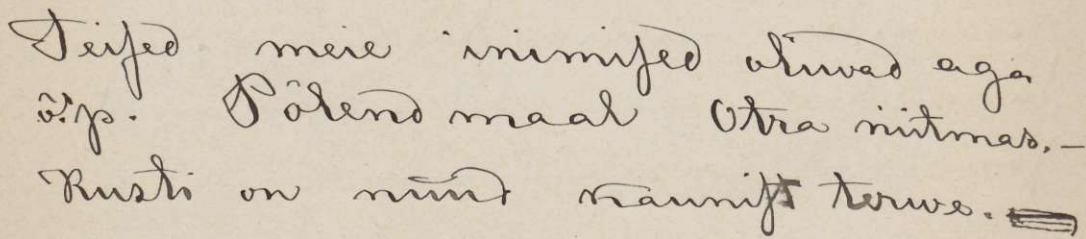 Teised meie inimised oliwad aga
õ.p. Põlend maal Otra niitmas. —
Kusti on nüüd kaunist terwe.